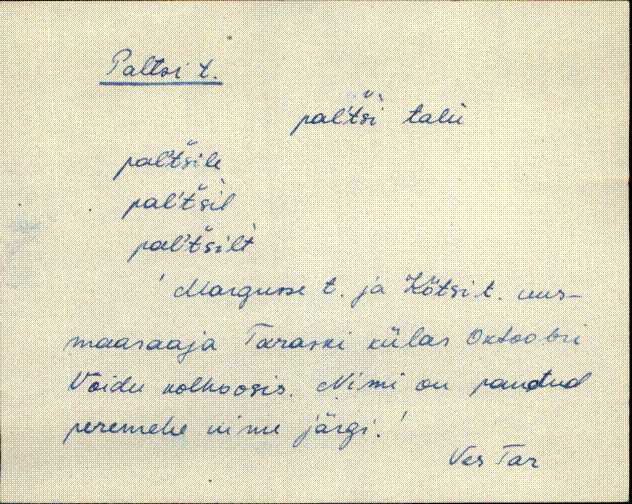 Paltsi t.
pal'tsi talu
pal'tsile
pal'tsil
pal'tsilt
'Margusse t. ja Kõtsi t. uus-
maasaaja Taraski külas Oktoobri
Võidu kolhoosis. Nimi on pandud
peremehe nime järgi.'
Vas Tar